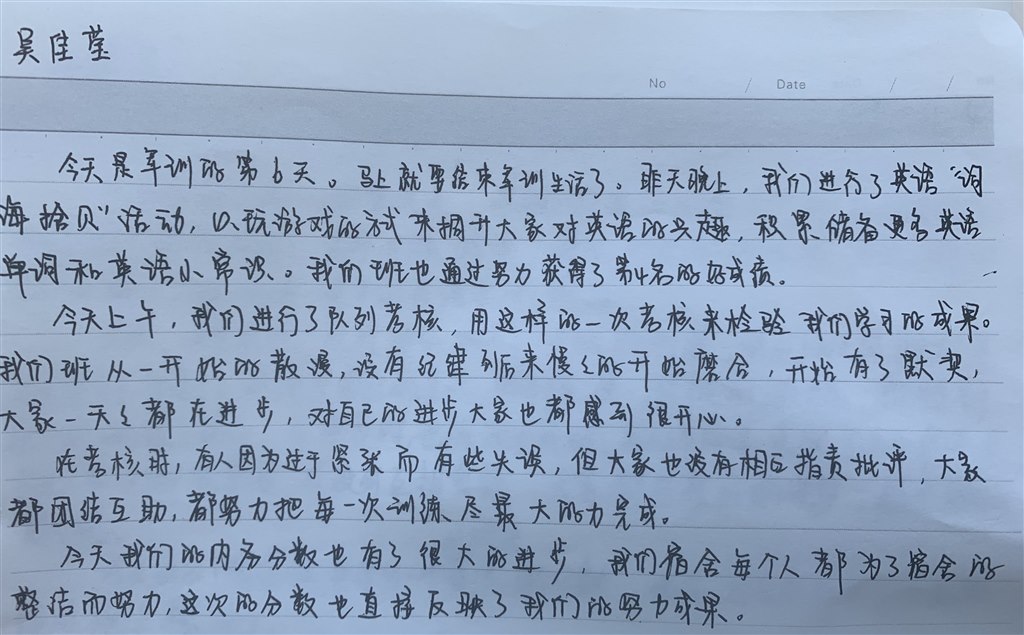 吴佳莹
No / Date / /
今天是军训的第6天。马上就要结束军训生活了。昨天晚上,我们进行了英语“词
海拾贝”活动,以玩游戏的方式来提升大家对英语的兴趣,积累储备更多英语
单词和英语小常识。我们班也通过努力获得了第4名的好成绩。
今天上午,我们进行了队列考核,用这样的一次考核来检验我们学习的成果。
我们班从一开始的散漫,没有纪律到后来慢々的开始磨合,开始有了默契,
大家一天々都在进步,对自己的进步大家也都感到很开心。
在考核时,有人因为过于紧张而有些失误,但大家也没有相互指责批评,大家
都团结互助,都努力把每一次训练尽最大的力完成。
今天我们的内务分数也有了很大的进步,我们宿舍每个人都为了宿舍的
整洁而努力,这次的分数也直接反映了我们的努力成果。